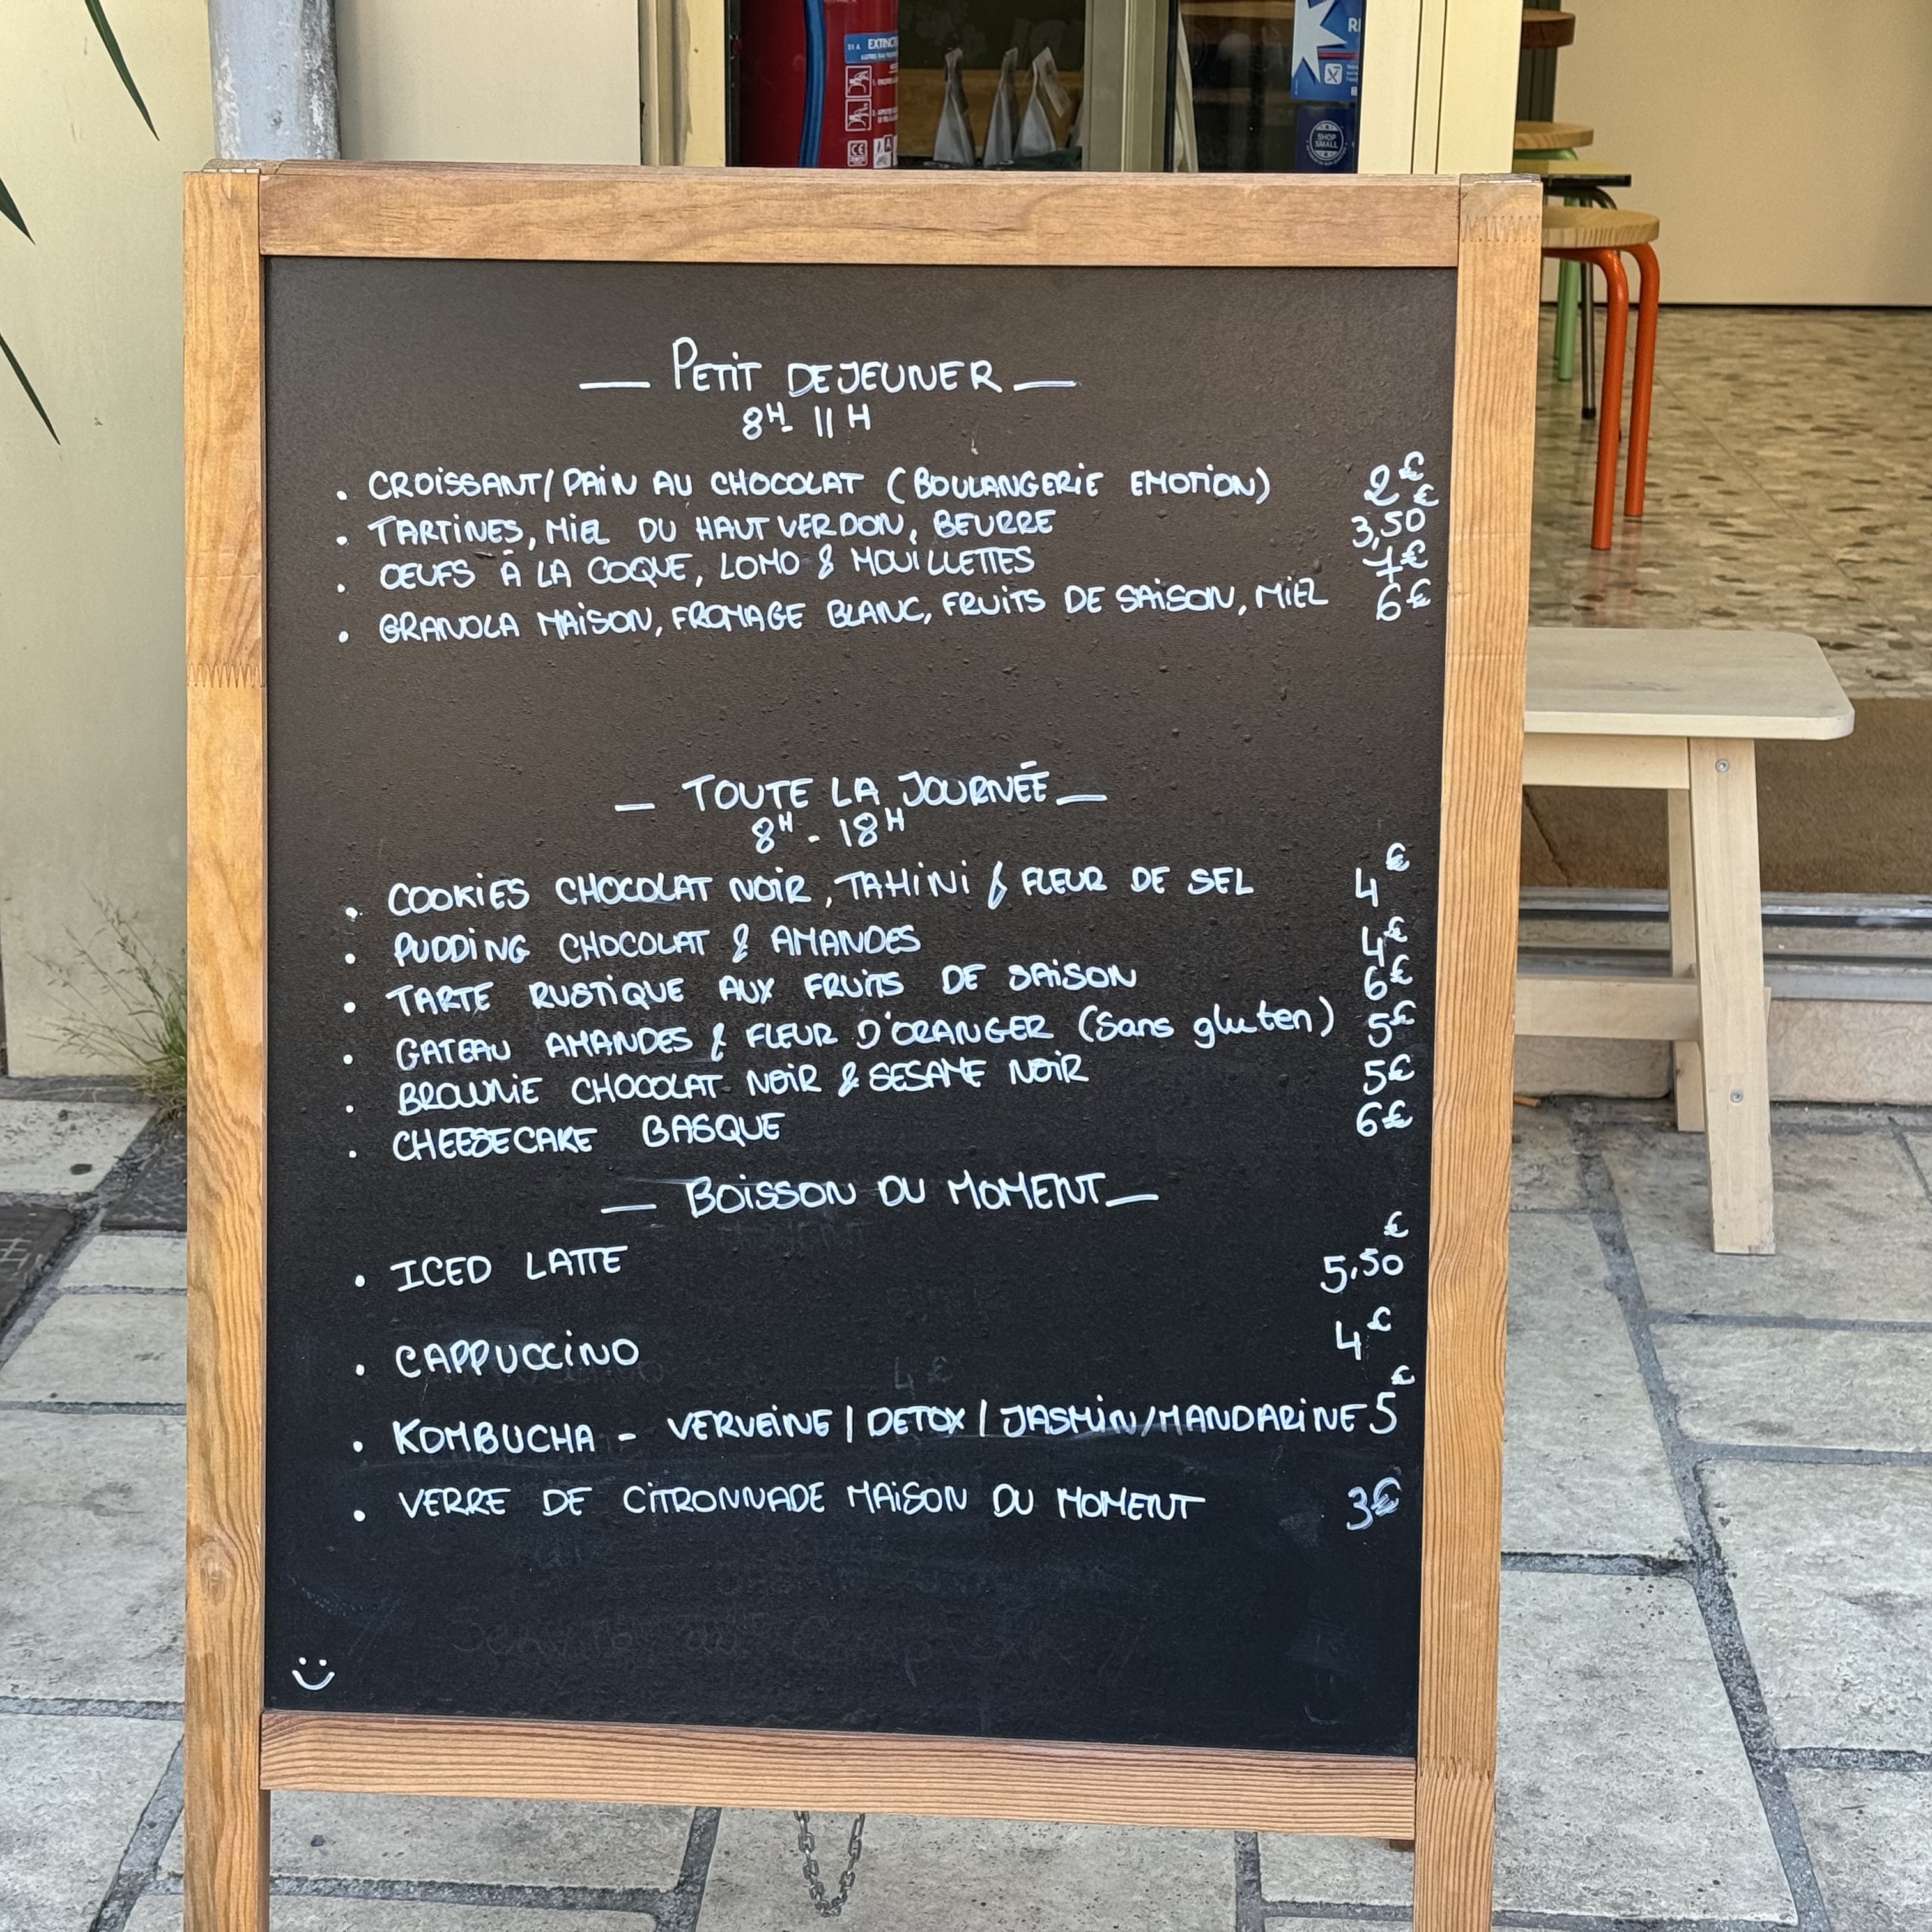 EXTINC
RE
SHOP SMALL
PETIT DEJEUNER
8H - 11H
. CROISSANT/PAIN AU CHOCOLAT (BOULANGERIE EMOTION) 2€
. TARTINES, MIEL DU HAUT VERDON, BEURRE 3,50€
. OEUFS À LA COQUE, LOMO & MOUILLETTES 7€
. GRANOLA MAISON, FROMAGE BLANC, FRUITS DE SAISON, MIEL 6€
— TOUTE LA JOURNÉE —
8H - 18H
. COOKIES CHOCOLAT NOIR, TAHINI & FLEUR DE SEL 4€
. PUDDING CHOCOLAT & AMANDES 4€
. TARTE RUSTIQUE AUX FRUITS DE SAISON 6€
. GATEAU AMANDES & FLEUR D'ORANGER (Sans gluten) 5€
. BROWNIE CHOCOLAT NOIR & SESAME NOIR 5€
. CHEESECAKE BASQUE 6€
— BOISSON DU MOMENT —
. ICED LATTE 5,50€
. CAPPUCCINO 4€
. KOMBUCHA - VERVEINE | DETOX | JASMIN/MANDARINE 5€
. VERRE DE CITRONNADE MAISON DU MOMENT 3€